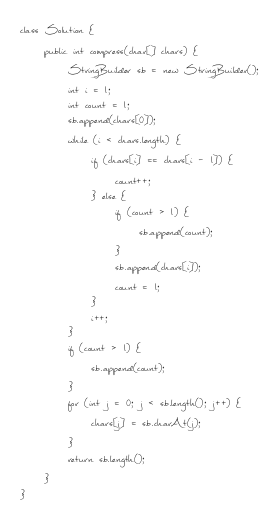 class Solution {
public int compress(char[] chars) {
StringBuilder sb = new StringBuilder();
int i = 1;
int count = 1;
sb.append(chars[0]);
while (i < chars.length) {
if (chars[i] == chars[i - 1]) {
count++;
} else {
if (count > 1) {
sb.append(count);
}
sb.append(chars[i]);
count = 1;
}
i++;
}
if (count > 1) {
sb.append(count);
}
for (int j = 0; j < sb.length(); j++) {
chars[j] = sb.charAt(j);
}
return sb.length();
}
}